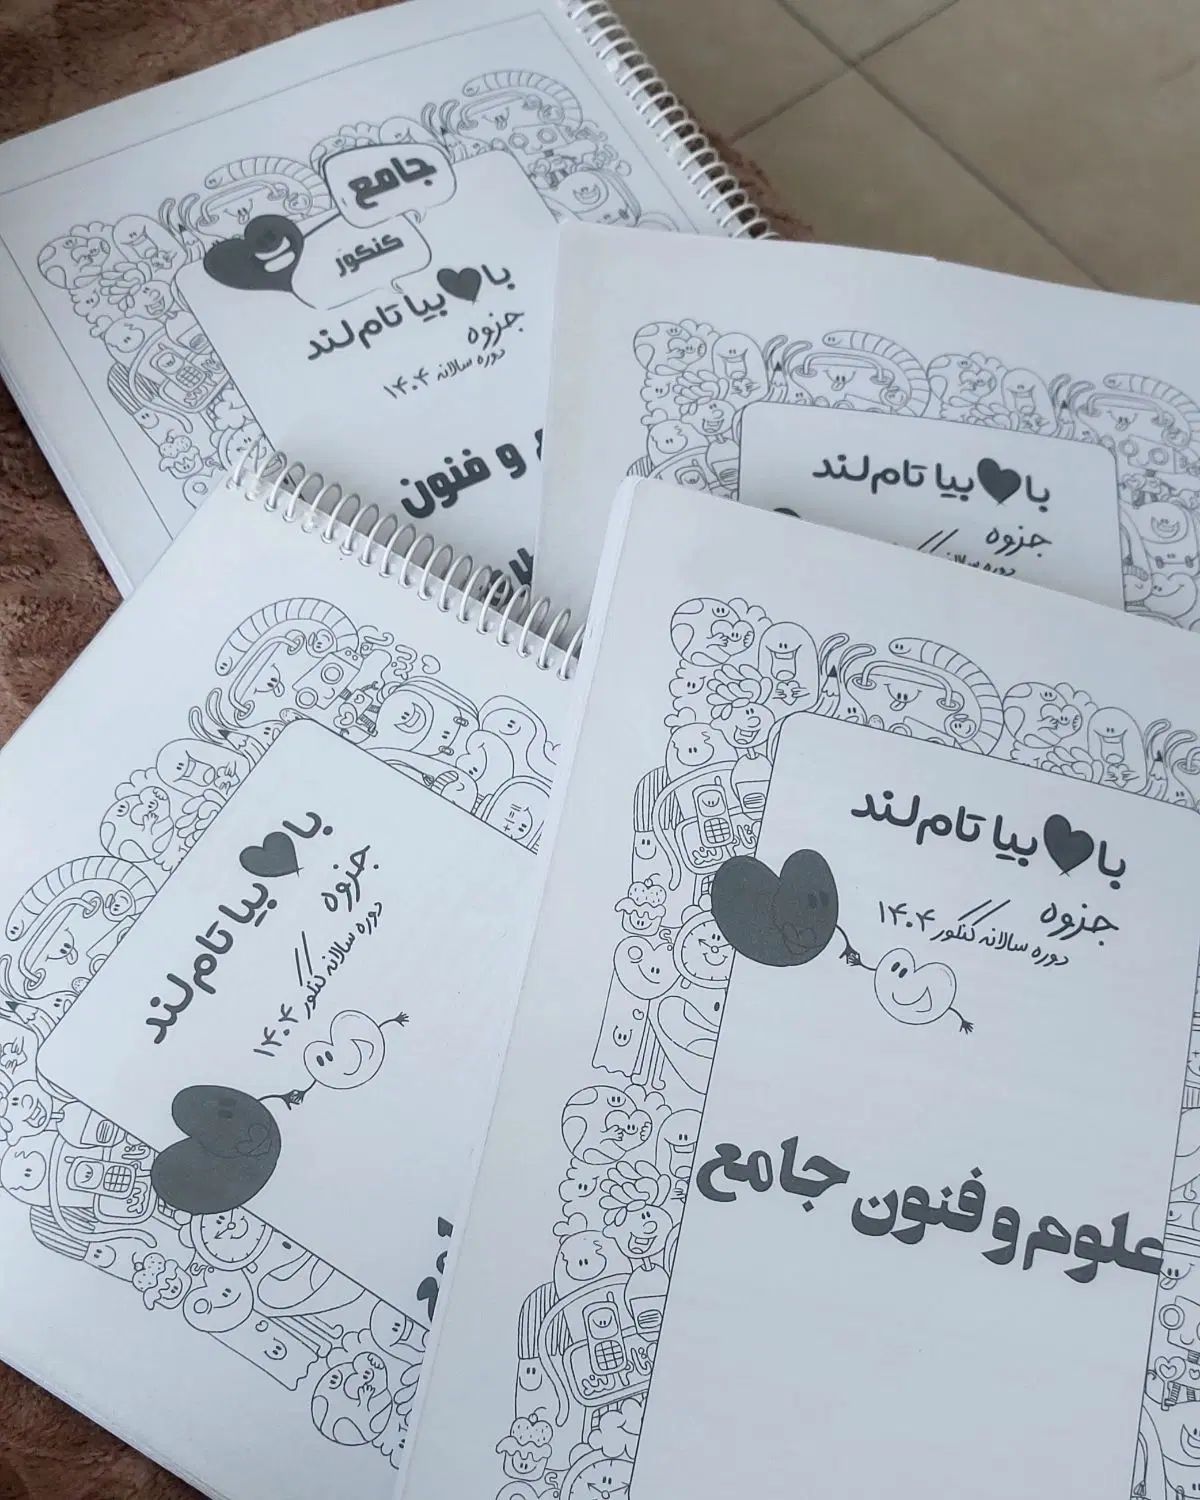 جامع
کنکور
با♥بیا تام‌لند
جزوه
دوره سالانه ۱۴۰۴
و فنون
با♥بیا تام‌لند
جزوه
دوره سالانه
با♥بیا تام‌لند
جزوه
دوره سالانه کنکور ۱۴۰۴
با♥بیا تام‌لند
جزوه
دوره سالانه کنکور ۱۴۰۴
علوم و فنون جامع